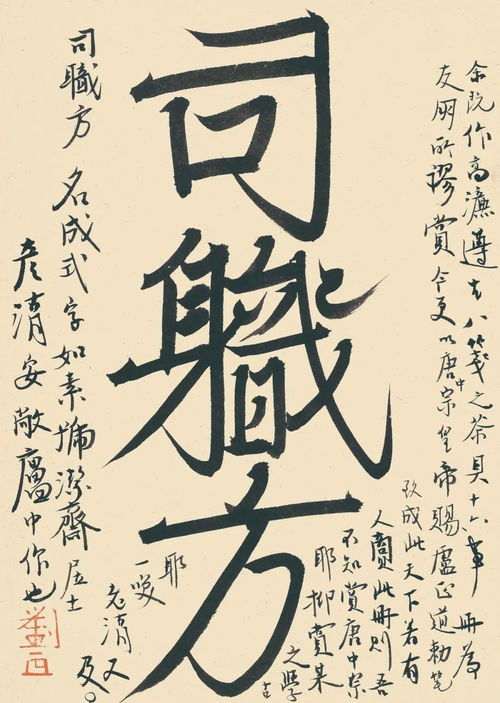 余既作高濂遵生八箋之茶具十六事冊為
友朋所謬賞今更以唐中宗皇帝賜盧正道勅筆
成此天下若有
人賞此冊則吾
不知賞唐中宗
耶抑賞某
之學
耶
一笑
彥清又
及
司職方
司職方名成式字如素號潔齋居士
彥清安敞廬中作也